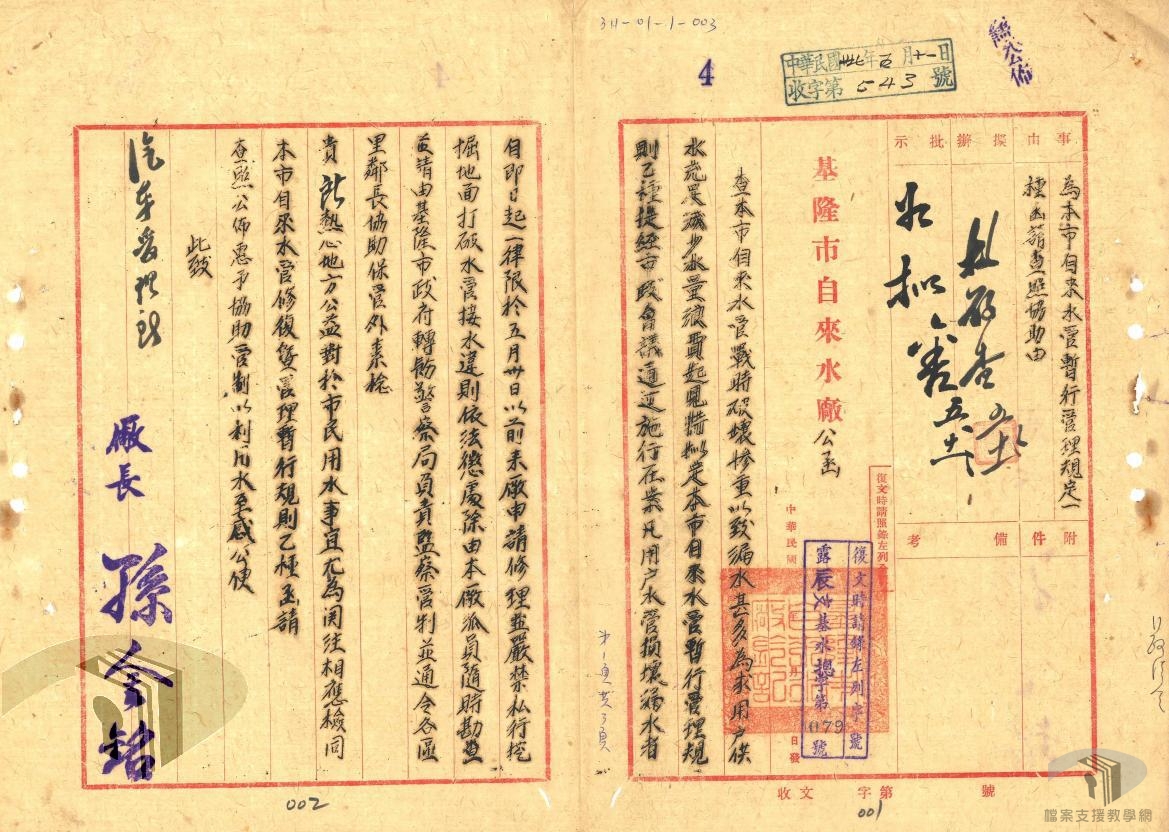 34-01-1-003
4
中華民國卅七年五月十一日
收字第543號
事由
擬辦
批示
為本市自來水管暫行管理規定一
種函請查照協助由
附件
備考
基隆市自來水廠公函
復文時請照錄左列
中華民國
日發
復文時請錄左列字號
基水總字第079號
查本市自來水管戰時破壞慘重以致漏水甚多為求用戶供
水充足減少水量浪費起見特擬定本市自來水管暫行管理規
則乙種提經市政會議通過施行在案凡用戶水管損壞漏水者
號
第
字
文
收
001
自即日起一律限於五月卅日以前來廠申請修理並嚴禁私行挖
掘地面打破水管接水違則依法懲處除由本廠派員隨時勘查
並請由基隆市政府轉飭警察局負責監察管制並通令各區
里鄰長協助保管外素稔
貴 熱心地方公益對於市民用水事宜尤為関注相應檢同
本市自來水管修復暨管理暫行規則乙種函請
查照公佈惠予協助管制以利用水至感公便
此致
廠長 孫
002
檔案支援教學網